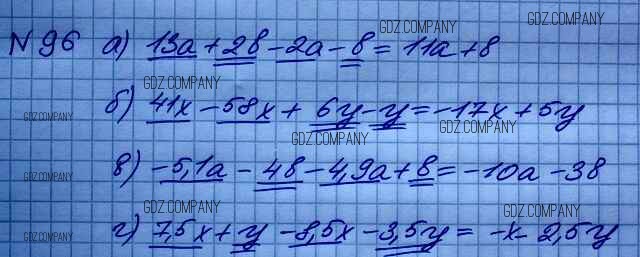 GDZ.COMPANY GDZ.COMPANY
N 96 а) 13a + 2b - 2a - b = 11a + b
GDZ.COMPANY
GDZ.COMPANY GDZ.COMPANY
б) 41x - 58x + 6y - y = -17x + 5y
GDZ.COMPANY GDZ.COMPANY
в) -5,1a - 4b - 4,9a + b = -10a - 3b
GDZ.COMPANY
GDZ.COMPANY GDZ.COMPANY
г) 7,5x + y - 8,5x - 3,5y = -x - 2,5y
GDZ.COMPANY GDZ.COMPANY GDZ.COMPANY